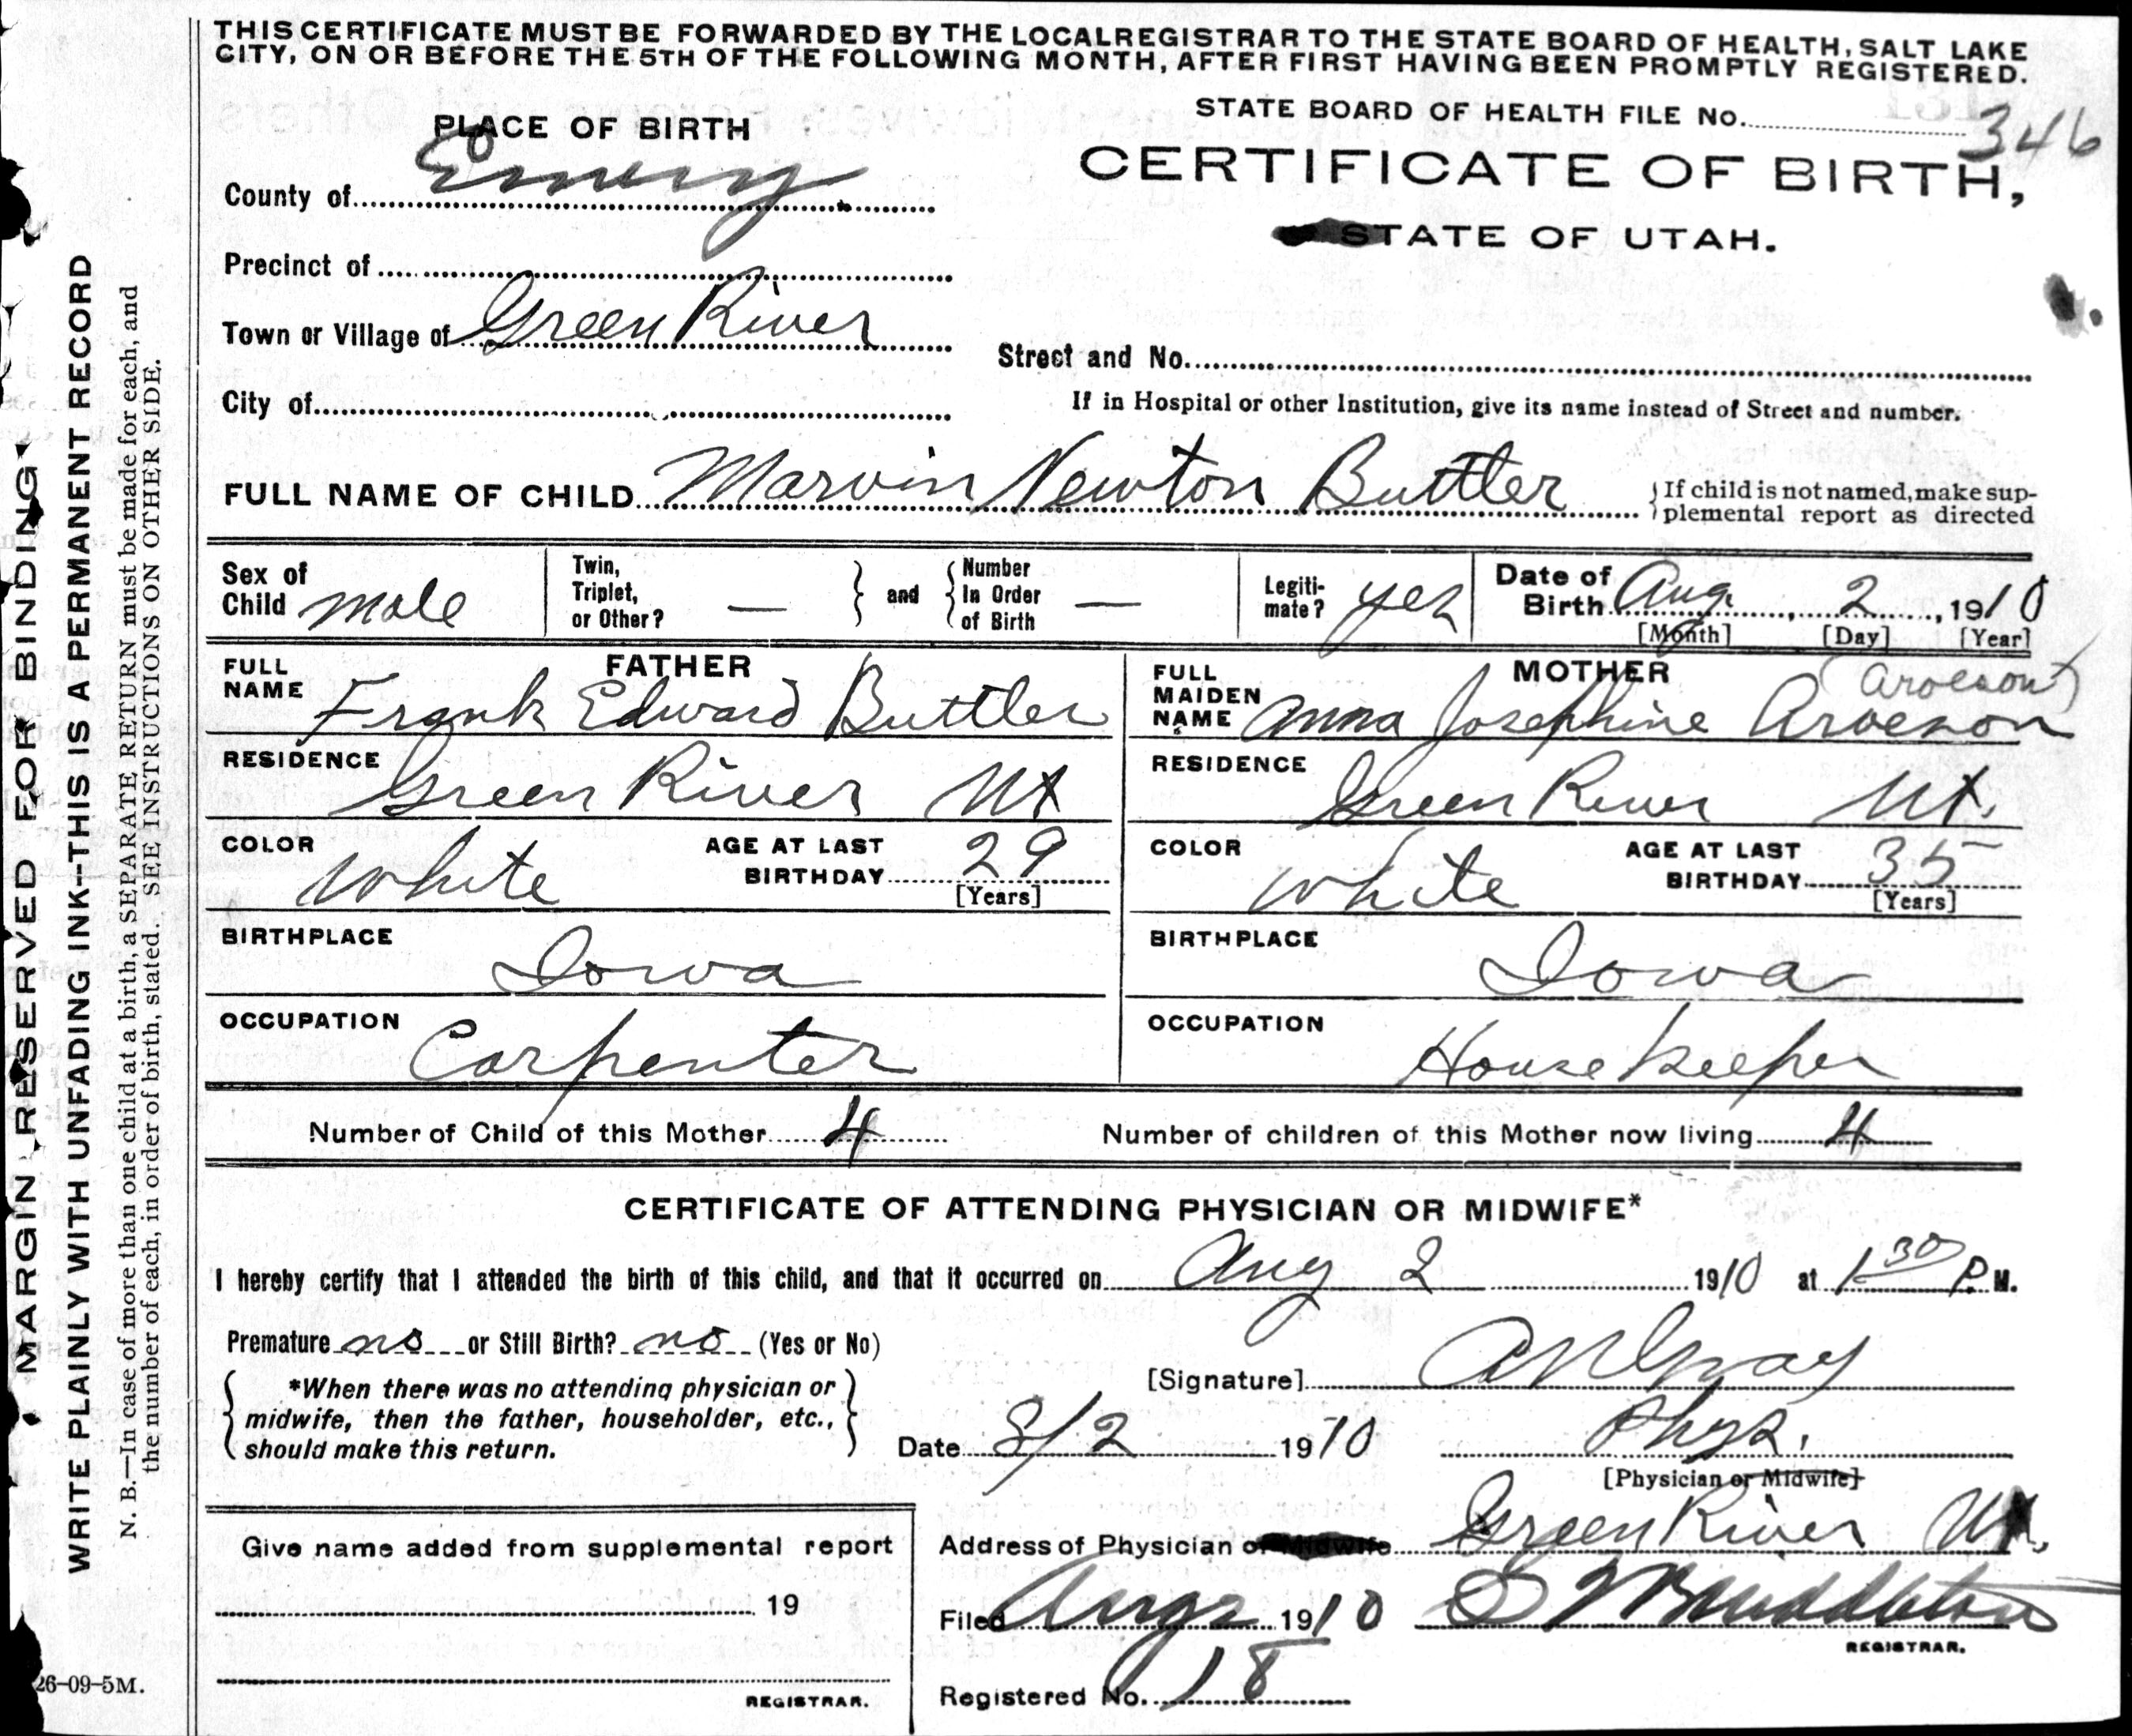 THIS CERTIFICATE MUST BE FORWARDED BY THE LOCAL REGISTRAR TO THE STATE BOARD OF HEALTH, SALT LAKE
CITY, ON OR BEFORE THE 5TH OF THE FOLLOWING MONTH, AFTER FIRST HAVING BEEN PROMPTLY REGISTERED.
STATE BOARD OF HEALTH FILE No. 346
PLACE OF BIRTH
CERTIFICATE OF BIRTH,
STATE OF UTAH.
County of Emery
Precinct of
Town or Village of Green River
Street and No.
City of
If in Hospital or other Institution, give its name instead of Street and number.
FULL NAME OF CHILD Marvin Newton Buttler
If child is not named, make sup-
plemental report as directed
Sex of Child male
Twin, Triplet, or Other? —
and
Number In Order of Birth —
Legiti-mate? yes
Date of Birth Aug. 2, 1910
[Month] [Day] [Year]
FATHER
FULL NAME Frank Edward Buttler
RESIDENCE Green River Ut
COLOR White
AGE AT LAST BIRTHDAY 29
[Years]
BIRTHPLACE Iowa
OCCUPATION Carpenter
MOTHER
(Arveson)
FULL MAIDEN NAME Anna Josephine Arveson
RESIDENCE Green River Ut.
COLOR White
AGE AT LAST BIRTHDAY 35
[Years]
BIRTHPLACE Iowa
OCCUPATION Housekeeper
Number of Child of this Mother 4
Number of children of this Mother now living 4
CERTIFICATE OF ATTENDING PHYSICIAN OR MIDWIFE*
I hereby certify that I attended the birth of this child, and that it occurred on Aug 2 1910 at 1 30 P. M.
Premature no or Still Birth? no (Yes or No)
*When there was no attending physician or
midwife, then the father, householder, etc.,
should make this return.
[Signature]
Date 8/2 1910
Phys.
[Physician or Midwife]
Address of Physician or Midwife Green River Ut.
Filed Aug 2 1910 Middleton
REGISTRAR.
Registered No. 18
Give name added from supplemental report
19
REGISTRAR.
26-09-5M.
MARGIN RESERVED FOR BINDING
WRITE PLAINLY WITH UNFADING INK—THIS IS A PERMANENT RECORD
N. B.—In case of more than one child at a birth, a SEPARATE RETURN must be made for each, and
the number of each, in order of birth, stated. SEE INSTRUCTIONS ON OTHER SIDE.